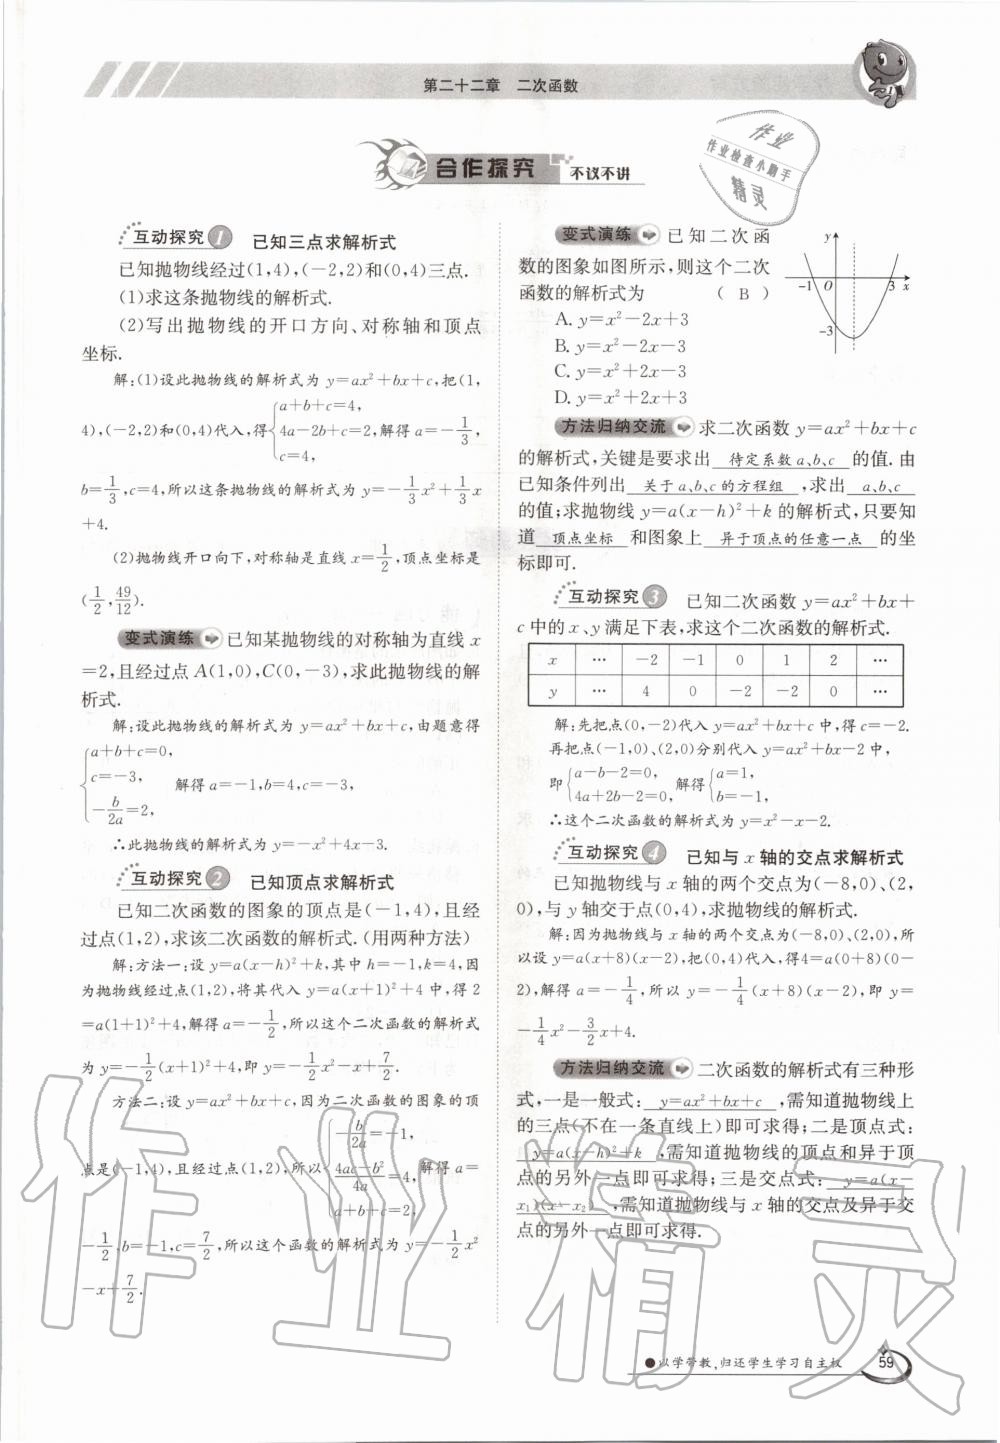 第二十二章　二次函数
作业
作业检查小助手
精灵
合作探究 不议不讲
互动探究1　已知三点求解析式
已知抛物线经过(1,4),(-2,2)和(0,4)三点.
(1)求这条抛物线的解析式.
(2)写出抛物线的开口方向、对称轴和顶点
坐标.
解:(1)设此抛物线的解析式为 y=ax²+bx+c,把(1,
4),(-2,2)和(0,4)代入,得{a+b+c=4, 4a-2b+c=2, c=4, 解得 a=-1/3,
b=1/3,c=4,所以这条抛物线的解析式为 y=-1/3x²+1/3x
+4.
(2)抛物线开口向下,对称轴是直线 x=1/2,顶点坐标是
(1/2,49/12).
变式演练 已知某抛物线的对称轴为直线 x
=2,且经过点 A(1,0),C(0,-3),求此抛物线的解
析式.
解:设此抛物线的解析式为 y=ax²+bx+c,由题意得
{a+b+c=0,
c=-3,　解得 a=-1,b=4,c=-3,
-b/2a=2,
∴此抛物线的解析式为 y=-x²+4x-3.
互动探究2　已知顶点求解析式
已知二次函数的图象的顶点是(-1,4),且经
过点(1,2),求该二次函数的解析式.(用两种方法)
解:方法一:设 y=a(x-h)²+k,其中 h=-1,k=4,因
为抛物线经过点(1,2),将其代入 y=a(x+1)²+4 中,得 2
=a(1+1)²+4,解得 a=-1/2,所以这个二次函数的解析式
为 y=-1/2(x+1)²+4,即 y=-1/2x²-x+7/2.
方法二:设 y=ax²+bx+c,因为二次函数的图象的顶
点是(-1,4),且经过点(1,2),所以{-b/2a=-1, 4ac-b²/4a=4, a+b+c=2, 解得 a=
-1/2,b=-1,c=7/2,所以这个函数的解析式为 y=-1/2x²
-x+7/2.
变式演练 已知二次函
数的图象如图所示,则这个二次
函数的解析式为　( B )
y
-1 O 3 x
-3
A. y=x²-2x+3
B. y=x²-2x-3
C. y=x²+2x-3
D. y=x²+2x+3
方法归纳交流 求二次函数 y=ax²+bx+c
的解析式,关键是要求出 待定系数a、b、c 的值.由
已知条件列出 关于a、b、c的方程组 ,求出 a、b、c
的值;求抛物线 y=a(x-h)²+k 的解析式,只要知
道 顶点坐标 和图象上 异于顶点的任意一点 的坐
标即可.
互动探究3　已知二次函数 y=ax²+bx+
c 中的 x、y 满足下表,求这个二次函数的解析式.
x … -2 -1 0 1 2 …
y … 4 0 -2 -2 0 …
解:先把点(0,-2)代入 y=ax²+bx+c 中,得 c=-2.
再把点(-1,0)、(2,0)分别代入 y=ax²+bx-2 中,
即{a-b-2=0, 4a+2b-2=0, 解得{a=1, b=-1,
∴这个二次函数的解析式为 y=x²-x-2.
互动探究4　已知与 x 轴的交点求解析式
已知抛物线与 x 轴的两个交点为(-8,0)、(2,
0),与 y 轴交于点(0,4),求抛物线的解析式.
解:因为抛物线与 x 轴的两个交点为(-8,0)、(2,0),所
以设 y=a(x+8)(x-2),把(0,4)代入,得4=a(0+8)(0-
2),解得 a=-1/4,所以 y=-1/4(x+8)(x-2),即 y=
-1/4x²-3/2x+4.
方法归纳交流 二次函数的解析式有三种形
式,一是一般式: y=ax²+bx+c ,需知道抛物线上
的三点(不在一条直线上)即可求得;二是顶点式:
y=a(x-h)²+k ,需知道抛物线的顶点和异于顶
点的另外一点即可求得;三是交点式: y=a(x-
x₁)(x-x₂) ,需知道抛物线与 x 轴的交点及异于交
点的另外一点即可求得.
作业精灵
●以学带教,归还学生学习自主权 59